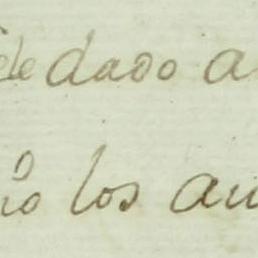 de dado a
ño los au